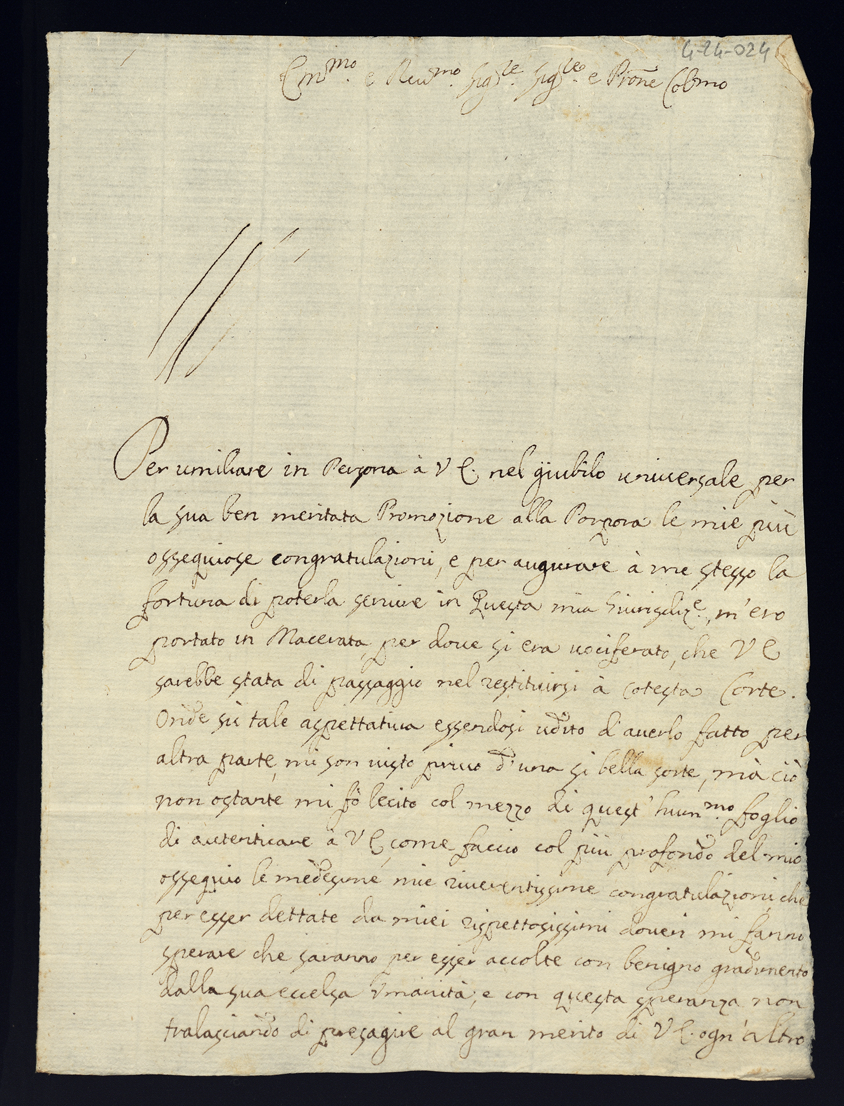 4-24-024
Em.mo e Rev.mo Sig.re Sig.re e Prone Colmo
Per umiliare in Persona à V E. nel giubilo universale per
la sua ben meritata Promozione alla Porpora le mie più
ossequiose congratulazioni, e per augurare à me stesso la
fortuna di poterla servire in Questa mia Giurisdiz.e, m'ero
portato in Macerata, per dove si era vociferato, che V E
sarebbe stata di passaggio nel restituirsi à cotesta Corte.
Onde sù tale aspettativa essendosi udito d'averlo fatto per
altra parte, mi son visto privo d'una si bella sorte, mà ciò
non ostante mi fò lecito col mezzo di quest' hum.mo foglio
di autenticare à V E, come faccio col più profondo del mio
ossequio le medesime mie riverentissime congratulazioni, che
per esser dettate da miei rispettosissimi doveri mi fanno
sperare che saranno per esser accolte con benigno gradimento
dalla sua eccelsa Umanità, e con questa speranza non
tralasciando di presagire al gran merito di V E. ogn'altro